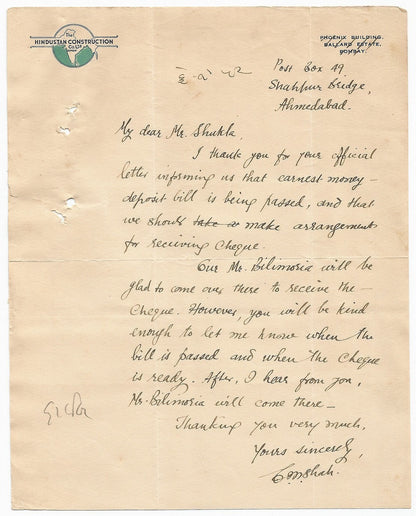 The
HINDUSTAN CONSTRUCTION
Co. Ltd
PHOENIX BUILDING,
BALLARD ESTATE,
BOMBAY.
Post Box 49
Shahpur Bridge,
Ahmedabad.
My dear Mr. Shukla,
I thank you for your official
letter informing us that earnest money-
deposit bill is being passed, and that
we should take a make arrangement
for receiving cheque.
Our Mr. Bilimoria will be
glad to come over there to receive the
cheque. However, you will be kind
enough to let me know when the
bill is passed and when the cheque
is ready. After, I hear from you,
Mr. Bilimoria will come there -
Thanking you very much,
Yours sincerely,